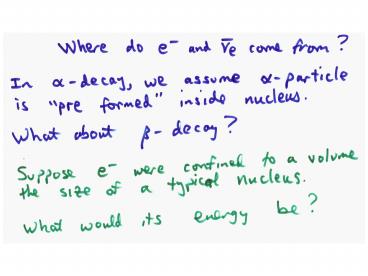 Where do e⁻ and ν̄e come from?
In α-decay, we assume α-particle
is "pre formed" inside nucleus.
What about β-decay?
Suppose e⁻ were confined to a volume
the size of a typical nucleus.
What would its energy be?